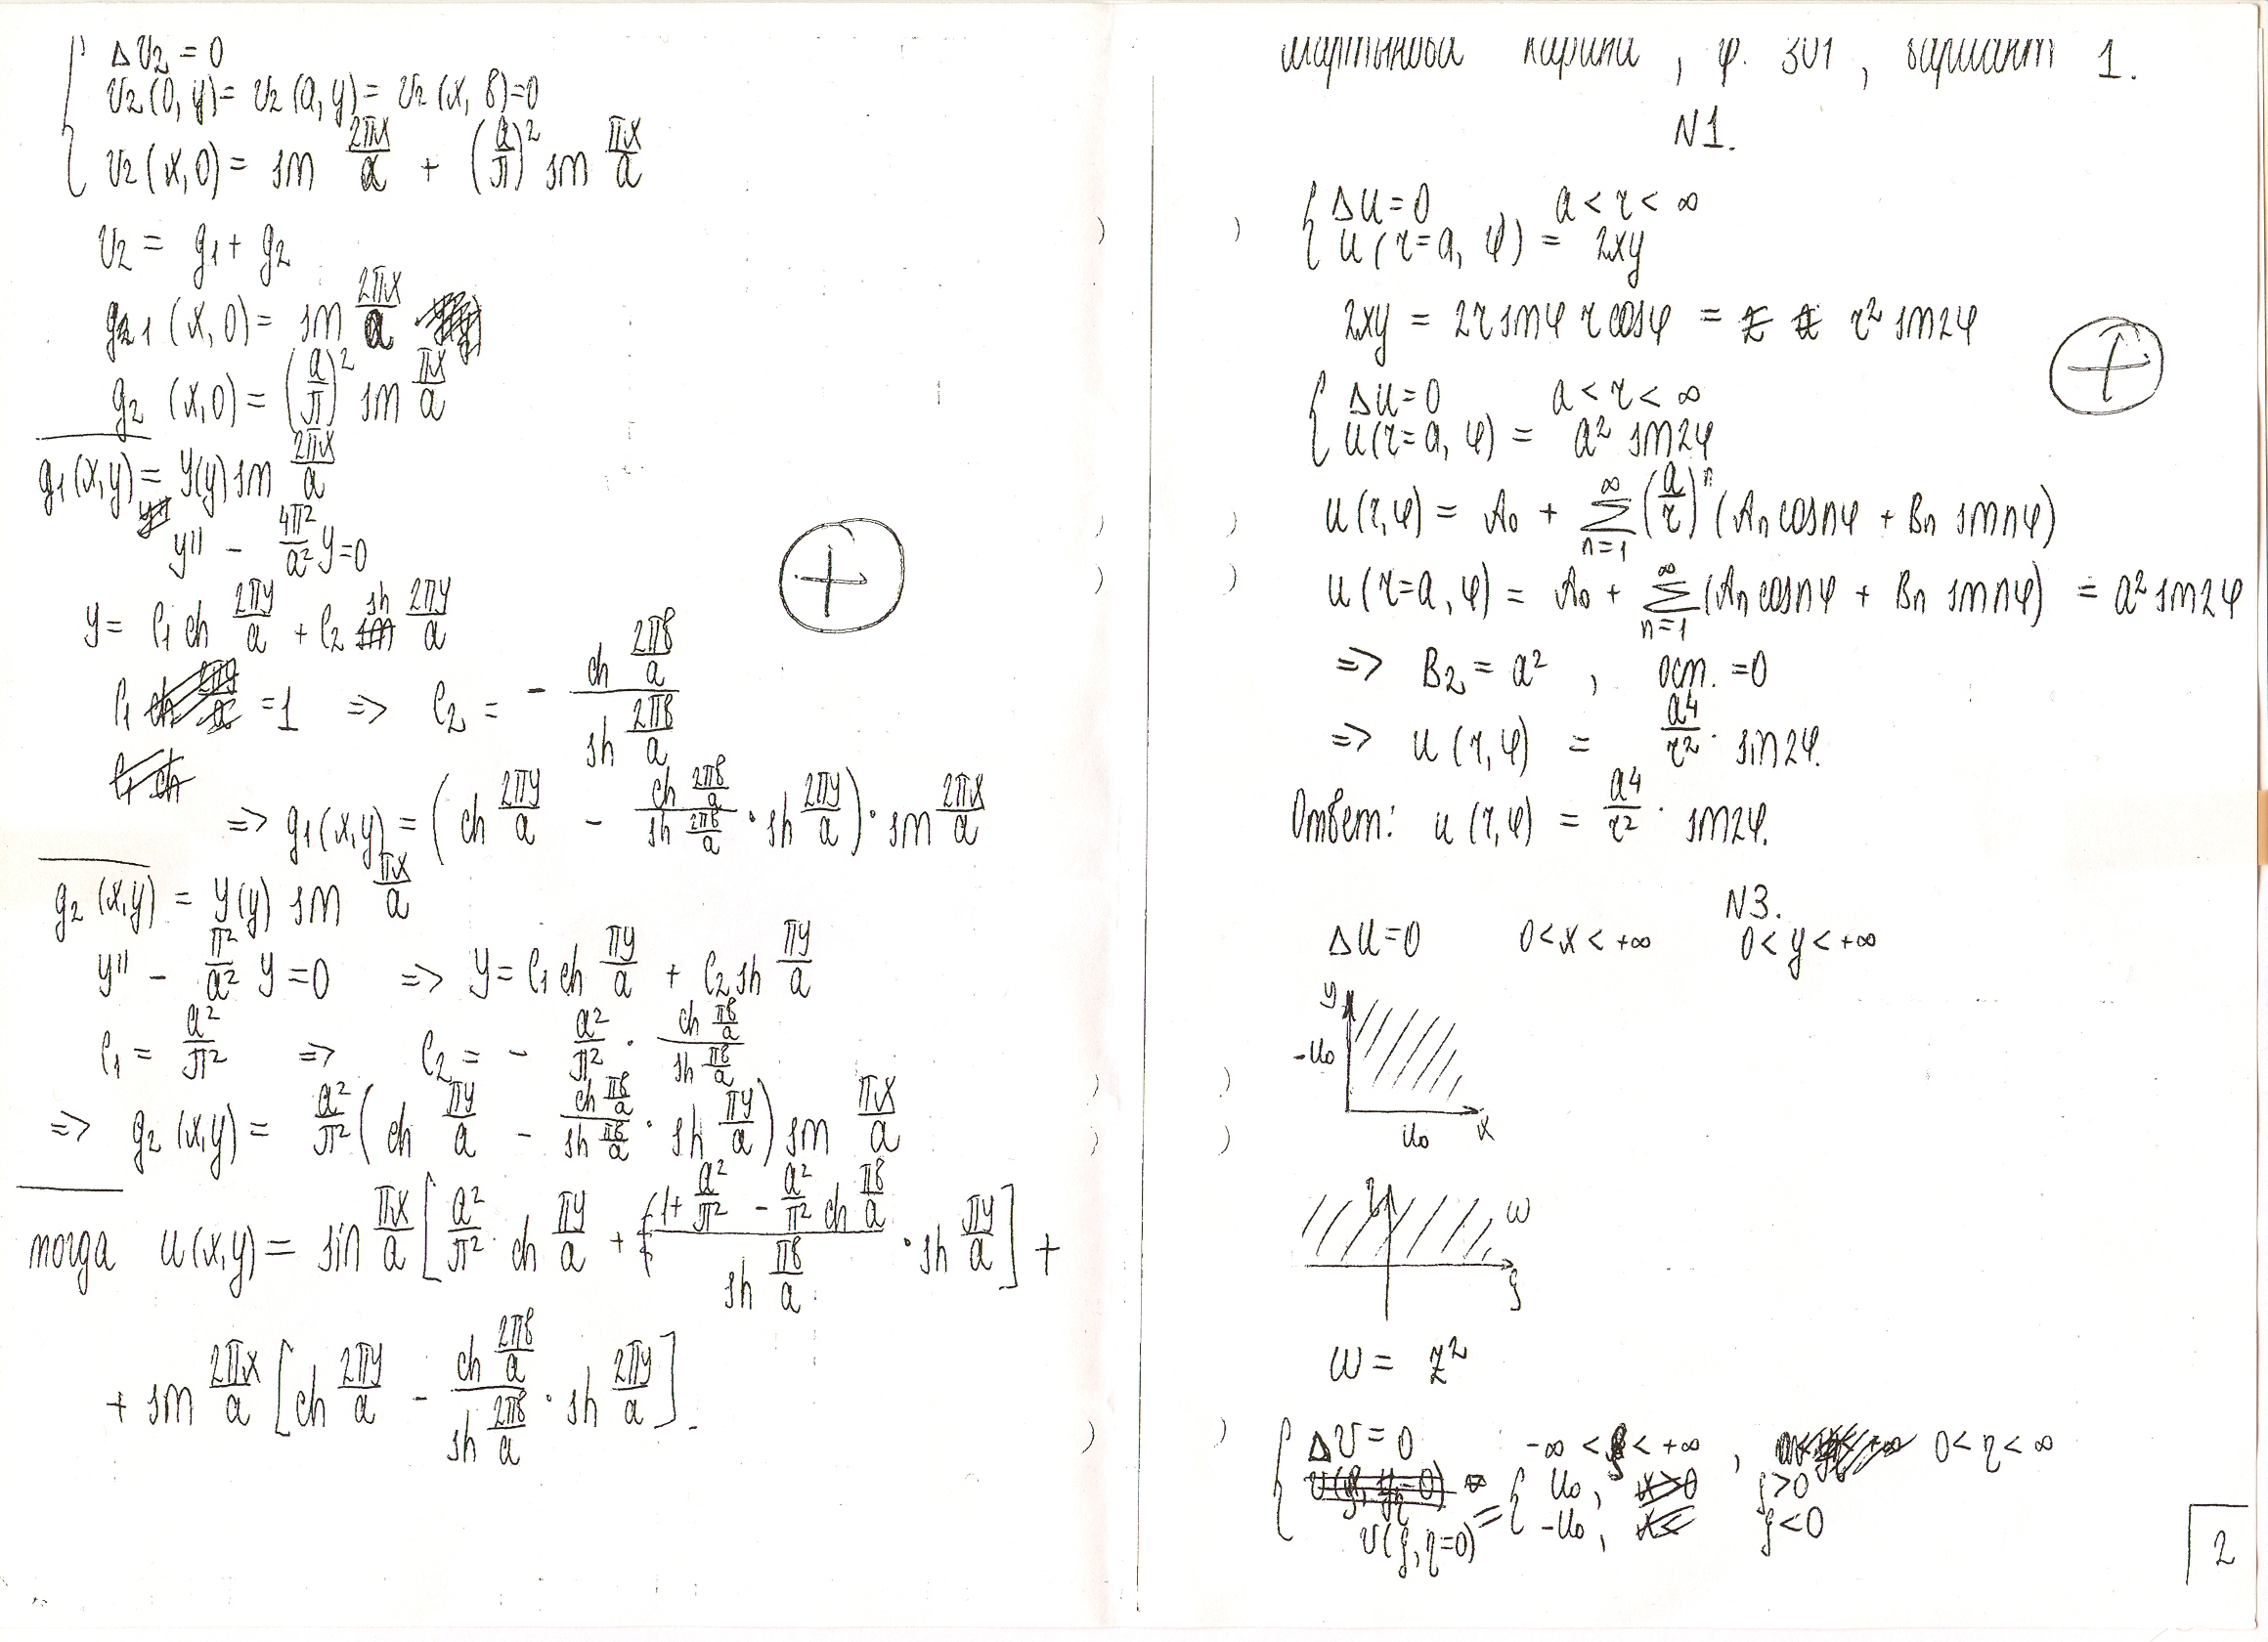 Δv₂ = 0
v₂(0, y) = v₂(a, y) = v₂(x, b) = 0
v₂(x, 0) = sin 2πx/a + (a/π)² sin πx/a
v₂ = g₁ + g₂
g₁(x, 0) = sin 2πx/a
g₂(x, 0) = (a/π)² sin πx/a
g₁(x,y) = Y(y) sin 2πx/a
Y'' − 4π²/a² Y = 0
Y = C₁ ch 2πy/a + C₂ sh 2πy/a
C₁ = 1 => C₂ = − ch 2πb/a / sh 2πb/a
=> g₁(x,y) = (ch 2πy/a − ch 2πb/a / sh 2πb/a · sh 2πy/a) · sin 2πx/a
g₂(x,y) = Y(y) sin πx/a
Y'' − π²/a² Y = 0 => Y = C₁ ch πy/a + C₂ sh πy/a
C₁ = a²/π² => C₂ = − a²/π² · ch πb/a / sh πb/a
=> g₂(x,y) = a²/π² (ch πy/a − ch πb/a / sh πb/a · sh πy/a) sin πx/a
тогда u(x,y) = sin πx/a [a²/π² · ch πy/a + (1 + a²/π² − a²/π² ch πb/a) / sh πb/a · sh πy/a] +
+ sin 2πx/a [ch 2πy/a − ch 2πb/a / sh 2πb/a · sh 2πy/a].
Мартынова Карина, ф. 301, вариант 1.
N1.
Δu = 0 a < r < ∞
u(r=a, φ) = 2xy
2xy = 2r sinφ r cosφ = r² sin2φ
Δu = 0 a < r < ∞
u(r=a, φ) = a² sin2φ
u(r,φ) = A₀ + ∑ n=1 ∞ (a/r)ⁿ (Aₙ cosnφ + Bₙ sinnφ)
u(r=a, φ) = A₀ + ∑ n=1 ∞ (Aₙ cosnφ + Bₙ sinnφ) = a² sin2φ
=> B₂ = a², ост. = 0
=> u(r,φ) = a⁴/r² · sin2φ.
Ответ: u(r,φ) = a⁴/r² · sin2φ.
N3.
Δu = 0 0 < x < +∞ 0 < y < +∞
y
-u₀
u₀ x
η ω
ξ
ω = z²
Δv = 0 -∞ < ξ < +∞, 0 < η < ∞
v(ξ, η=0) = { u₀, ξ > 0
-u₀, ξ < 0
2